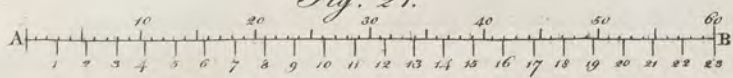 Fig. 21.
10 20 30 40 50 60
A B
1 2 3 4 5 6 7 8 9 10 11 12 13 14 15 16 17 18 19 20 21 22 23